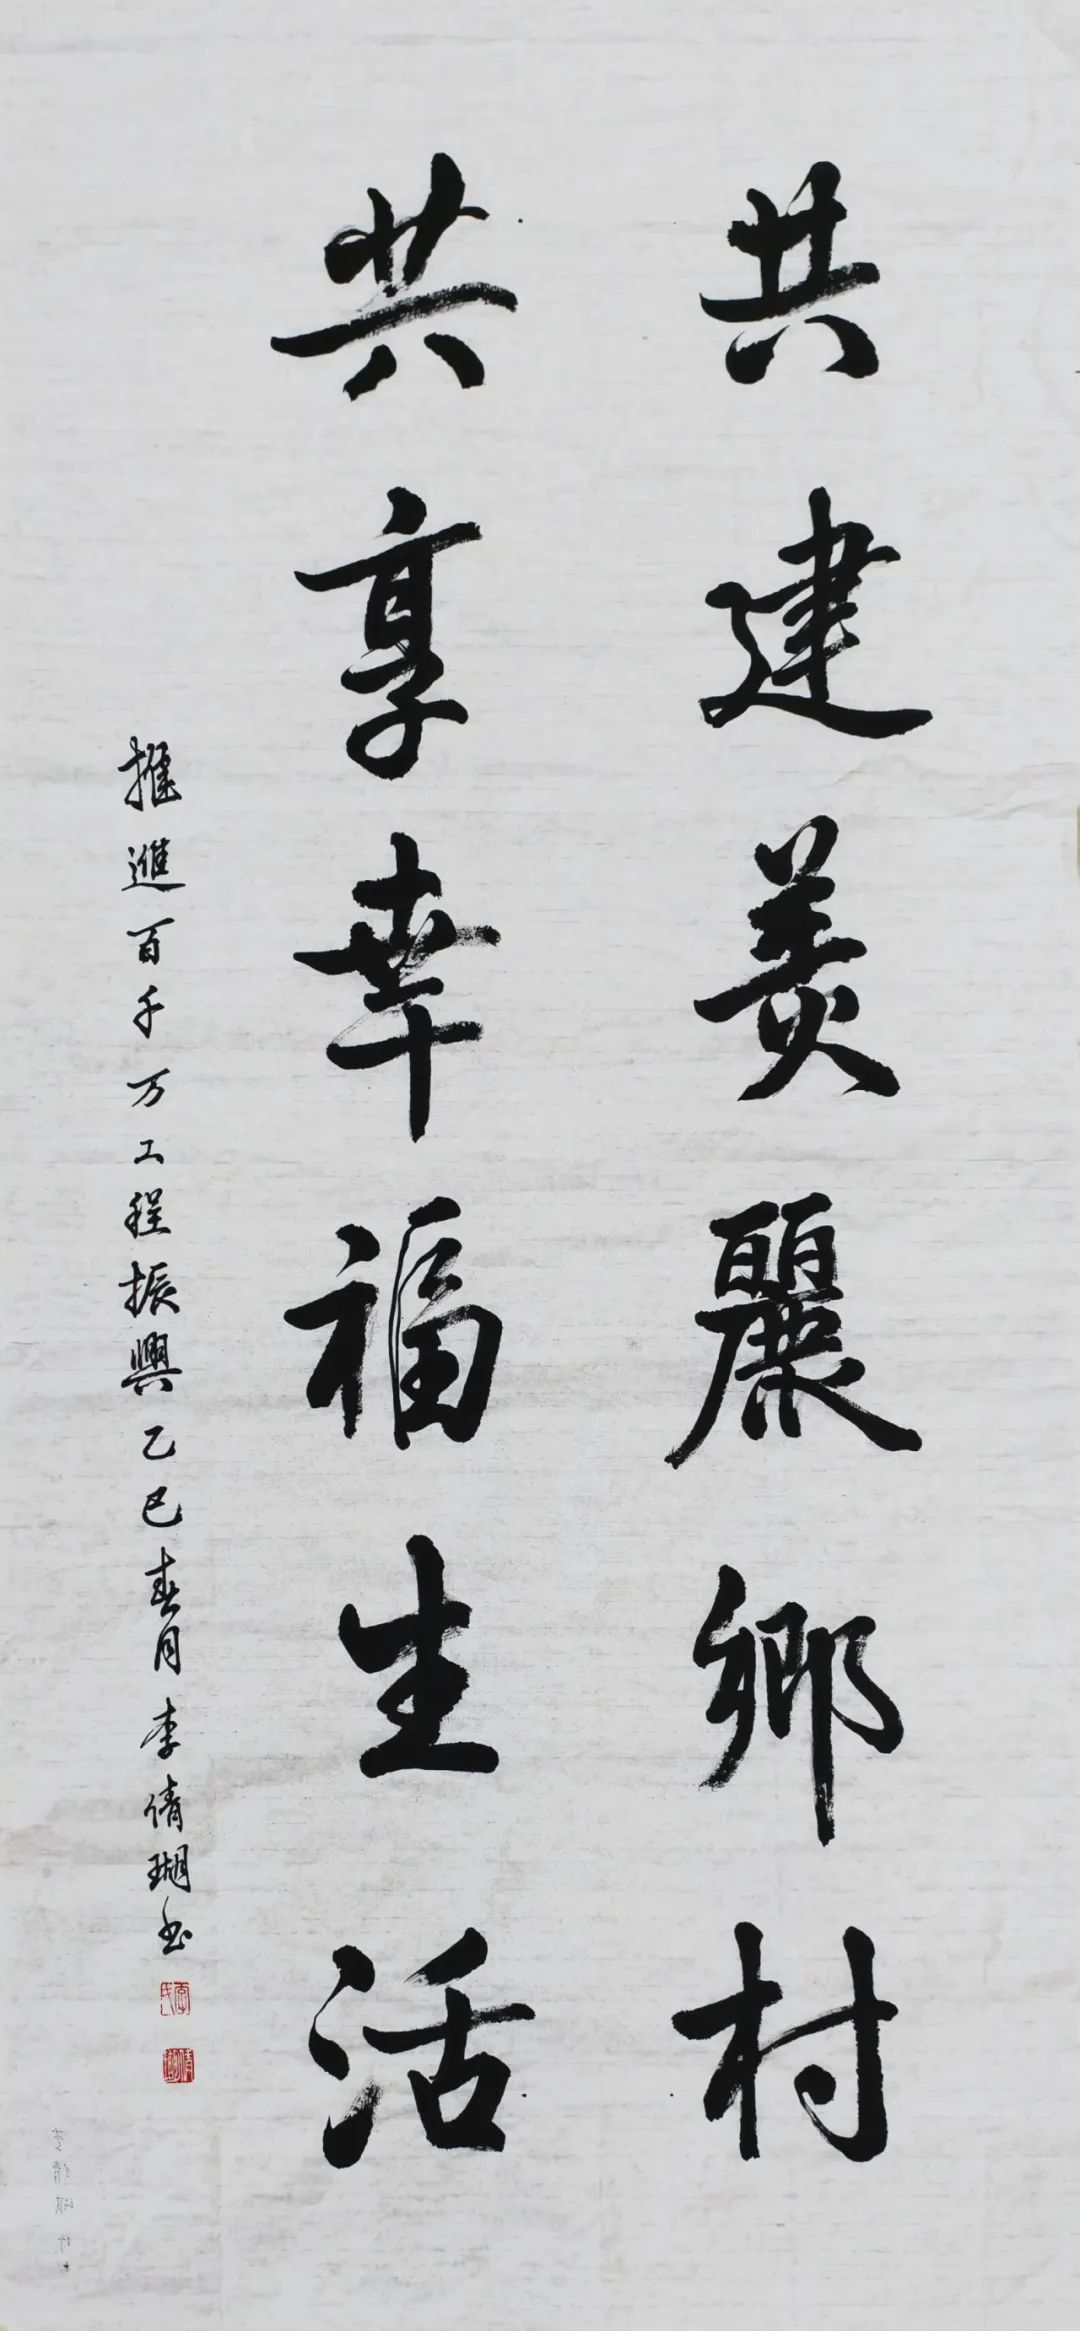 共建美麗鄉村
共享幸福生活
推進百千万工程振興乙巳春月李倩瑚书